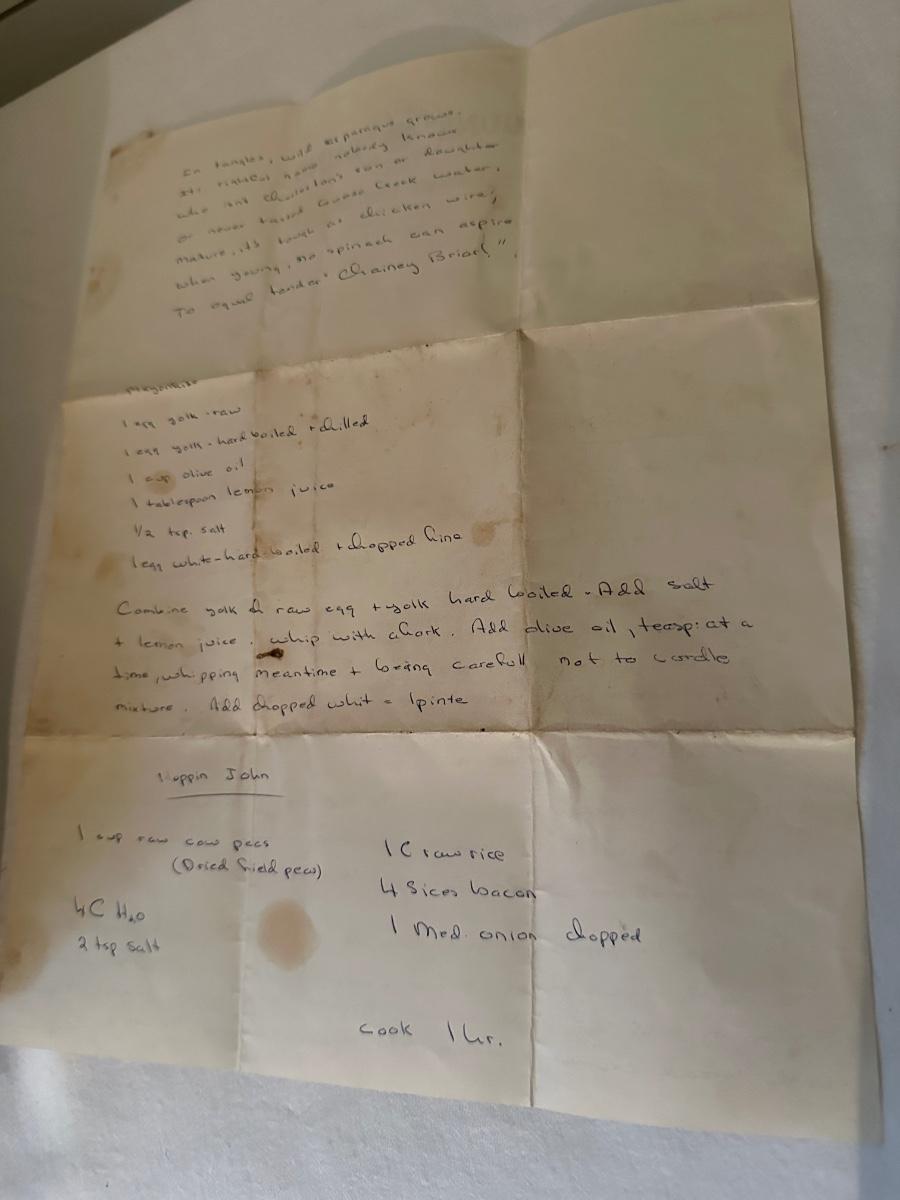 In tangles, wild asparagus grows.
Its rightful name nobody knows
who isn't Charleston's son or daughter
or never tasted Goose Creek water.
mature, it's tough as chicken wire;
when young, no spinach can aspire
To equal tender "Chainey Briar!"
Mayonaise
1 egg yolk - raw
1 egg yolk - hard boiled + chilled
1 cup olive oil
1 tablespoon lemon juice
1/2 tsp. salt
1 egg white - hard-boiled + chopped fine
Combine yolk of raw egg + yolk hard boiled - Add salt
+ lemon juice. whip with a fork. Add olive oil, teasp: at a
time, whipping meantime + being carefull not to curdle
mixture. Add chopped whit = 1 pinte
Hoppin John
1 cup raw cow peas
(Dried field peas)
4C H2O
2 tsp salt
1 C raw rice
4 Slices bacon
1 Med. onion chopped
cook 1 hr.